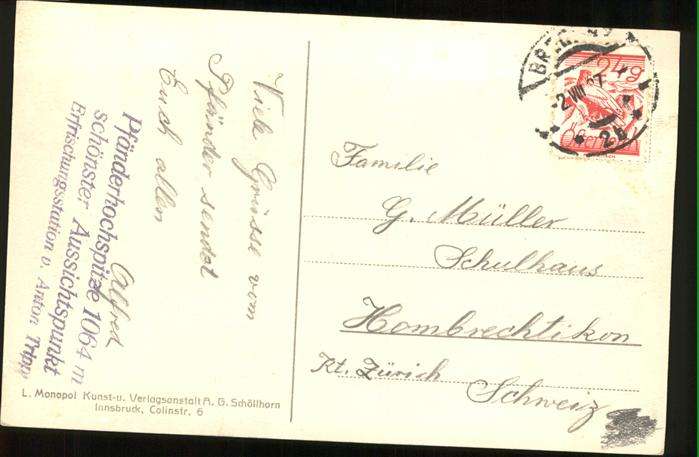 Viele Grüsse vom
Pfänder sendet
Euch allen
Alfred
Pfänderhochspitze 1064 m
schönster Aussichtspunkt
Erfrischungsstation v. Anton
BREGENZ
2 VIII
2b
24g
Familie
G. Müller
Schulhaus
Hombrechtikon
Kt. Zürich
Schweiz
L. Monopol Kunst-u. Verlagsanstalt A. G. Schöllhorn
Innsbruck, Colinstr. 6